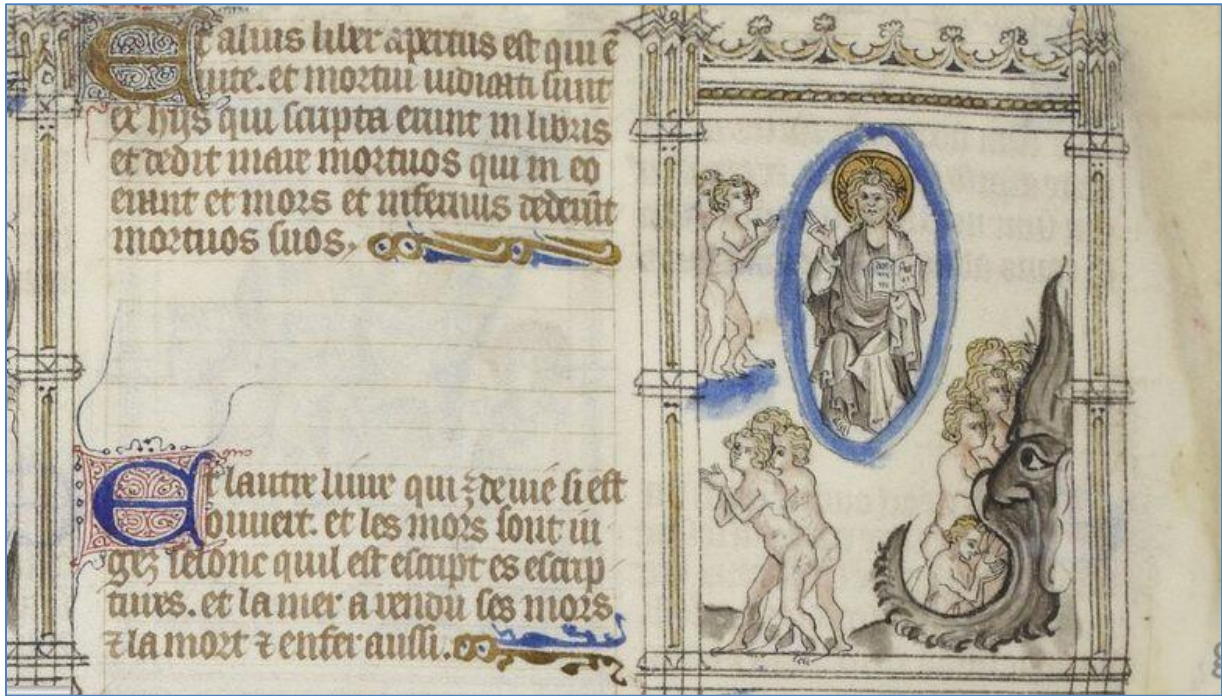 Et alius liber apertus est qui ē
uite. et mortui iudicati sunt
ex hijs qui scripta erant in libris
et dedit mare mortuos qui in eo
erant et mors et infernus dederūt
mortuos suos.
Et lautre liure qui ⁊ de uie si est
ouuert. et les mors sont iu
gez selonc quil est escript es escrip
tures. et la mer a rendu ses mors
⁊ la mort ⁊ enfer aussi.